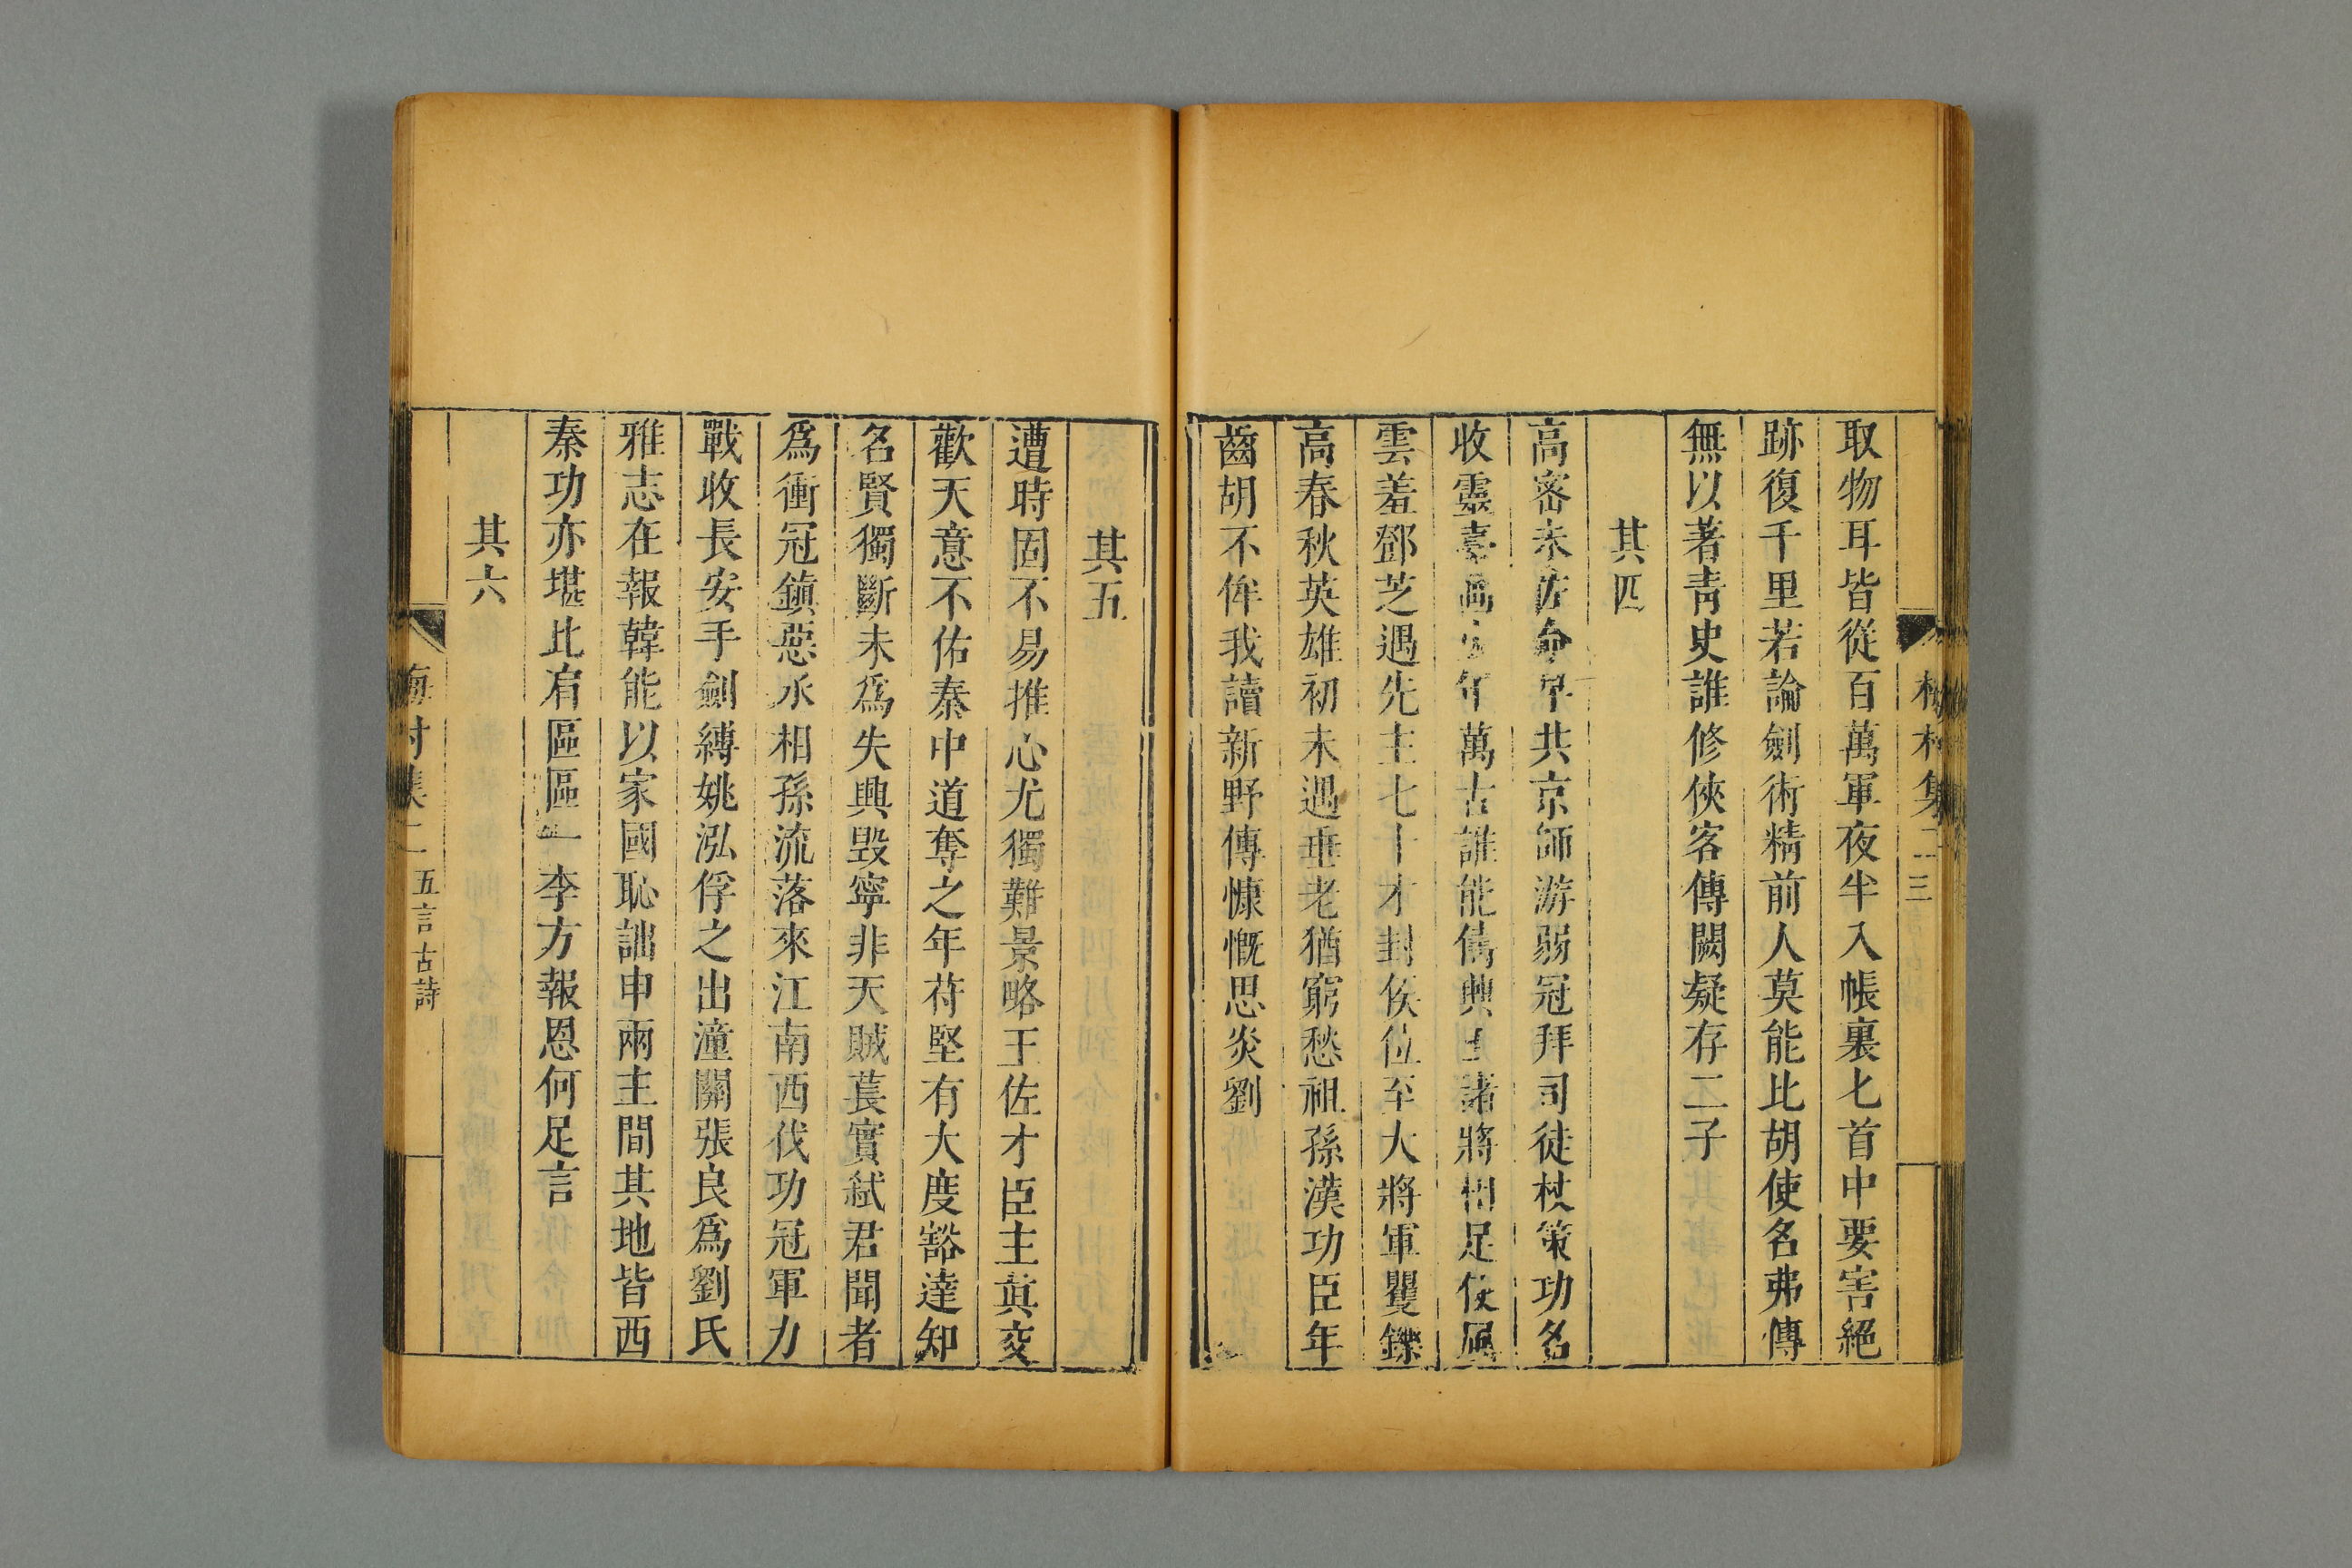 取物耳皆從百萬軍夜半入帳裏匕首中要害絕
跡復千里若論劍術精前人莫能比胡使名弗傳
無以著靑史誰修俠客傳闕疑存二子
其四
高密未佐命早共京師游弱冠拜司徒杖策功名
收靈臺畫 年萬古誰能儔興 諸將相足使風
雲羞鄧芝遇先主七十才封侯位至大將軍矍鑠
高春秋英雄初未遇垂老猶窮愁祖孫漢功臣年
齒胡不侔我讀新野傳慷慨思炎劉
其五
遭時固不易推心尤獨難景略王佐才臣主眞交
歡天意不佑秦中道奪之年苻堅有大度豁達知
名賢獨斷未爲失興毀寧非天賊萇實弒君聞者
爲衝冠鎭惡丞相孫流落來江南西伐功冠軍力
戰收長安手劍縛姚泓俘之出潼關張良爲劉氏
雅志在報韓能以家國恥詘申兩主間其地皆西
秦功亦堪比肩區區一李方報恩何足言
其六
梅村集二 五言古詩
村集二 三